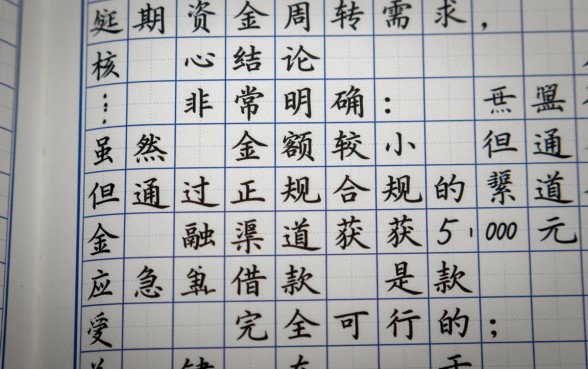 期资金周转需求，
核心结论
⋮非常明确：
虽然金额较小但通
但通过正规合规的道
金融渠道获获5,000元
应急借款是款
受完全可行的；